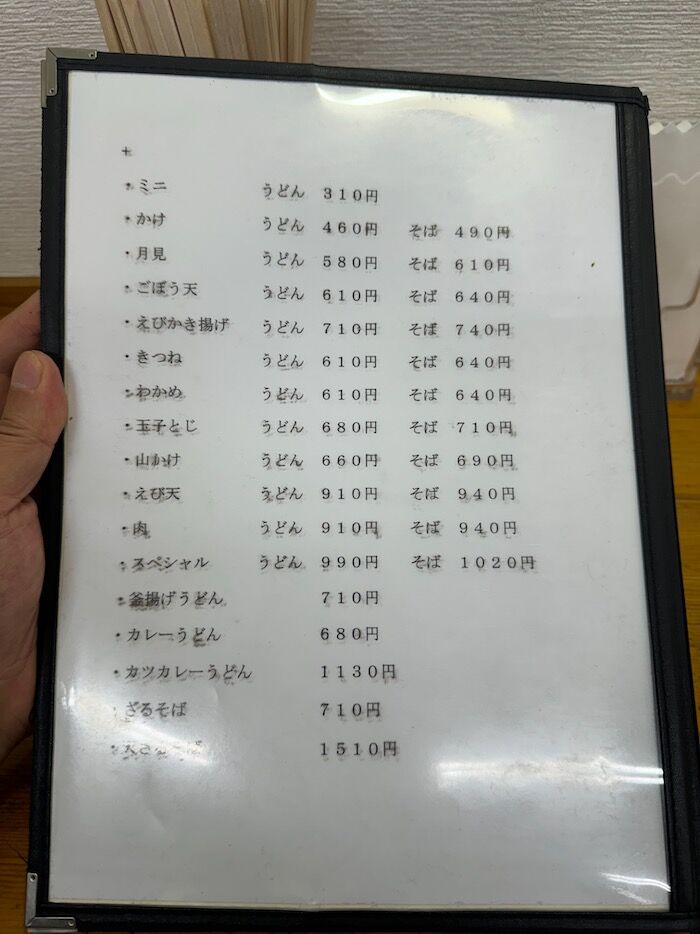 +
・ミニ うどん 310円
・かけ うどん 460円 そば 490円
・月見 うどん 580円 そば 610円
・ごぼう天 うどん 610円 そば 640円
・えびかき揚げ うどん 710円 そば 740円
・きつね うどん 610円 そば 640円
・わかめ うどん 610円 そば 640円
・玉子とじ うどん 680円 そば 710円
・山かけ うどん 660円 そば 690円
・えび天 うどん 910円 そば 940円
・肉 うどん 910円 そば 940円
・スペシャル うどん 990円 そば 1020円
・釜揚げうどん 710円
・カレーうどん 680円
・カツカレーうどん 1130円
・ざるそば 710円
・天ざるそば 1510円